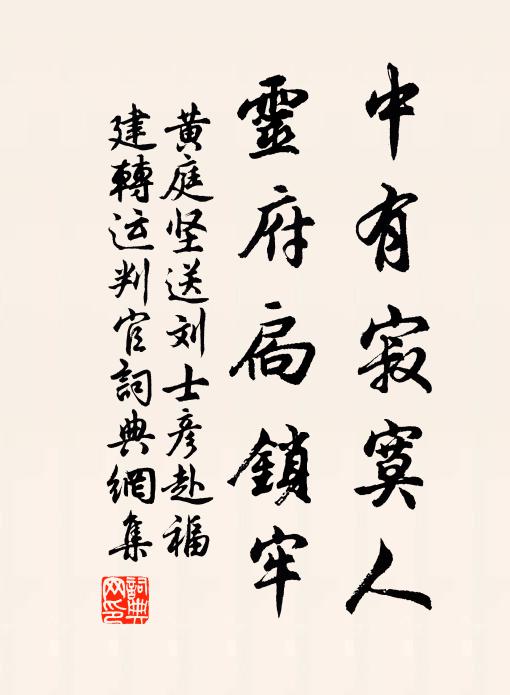 中有寂寞人
靈府扃鎖牢
黄庭坚送刘士彦赴福
建轉运判官詞典網集
詞典網印